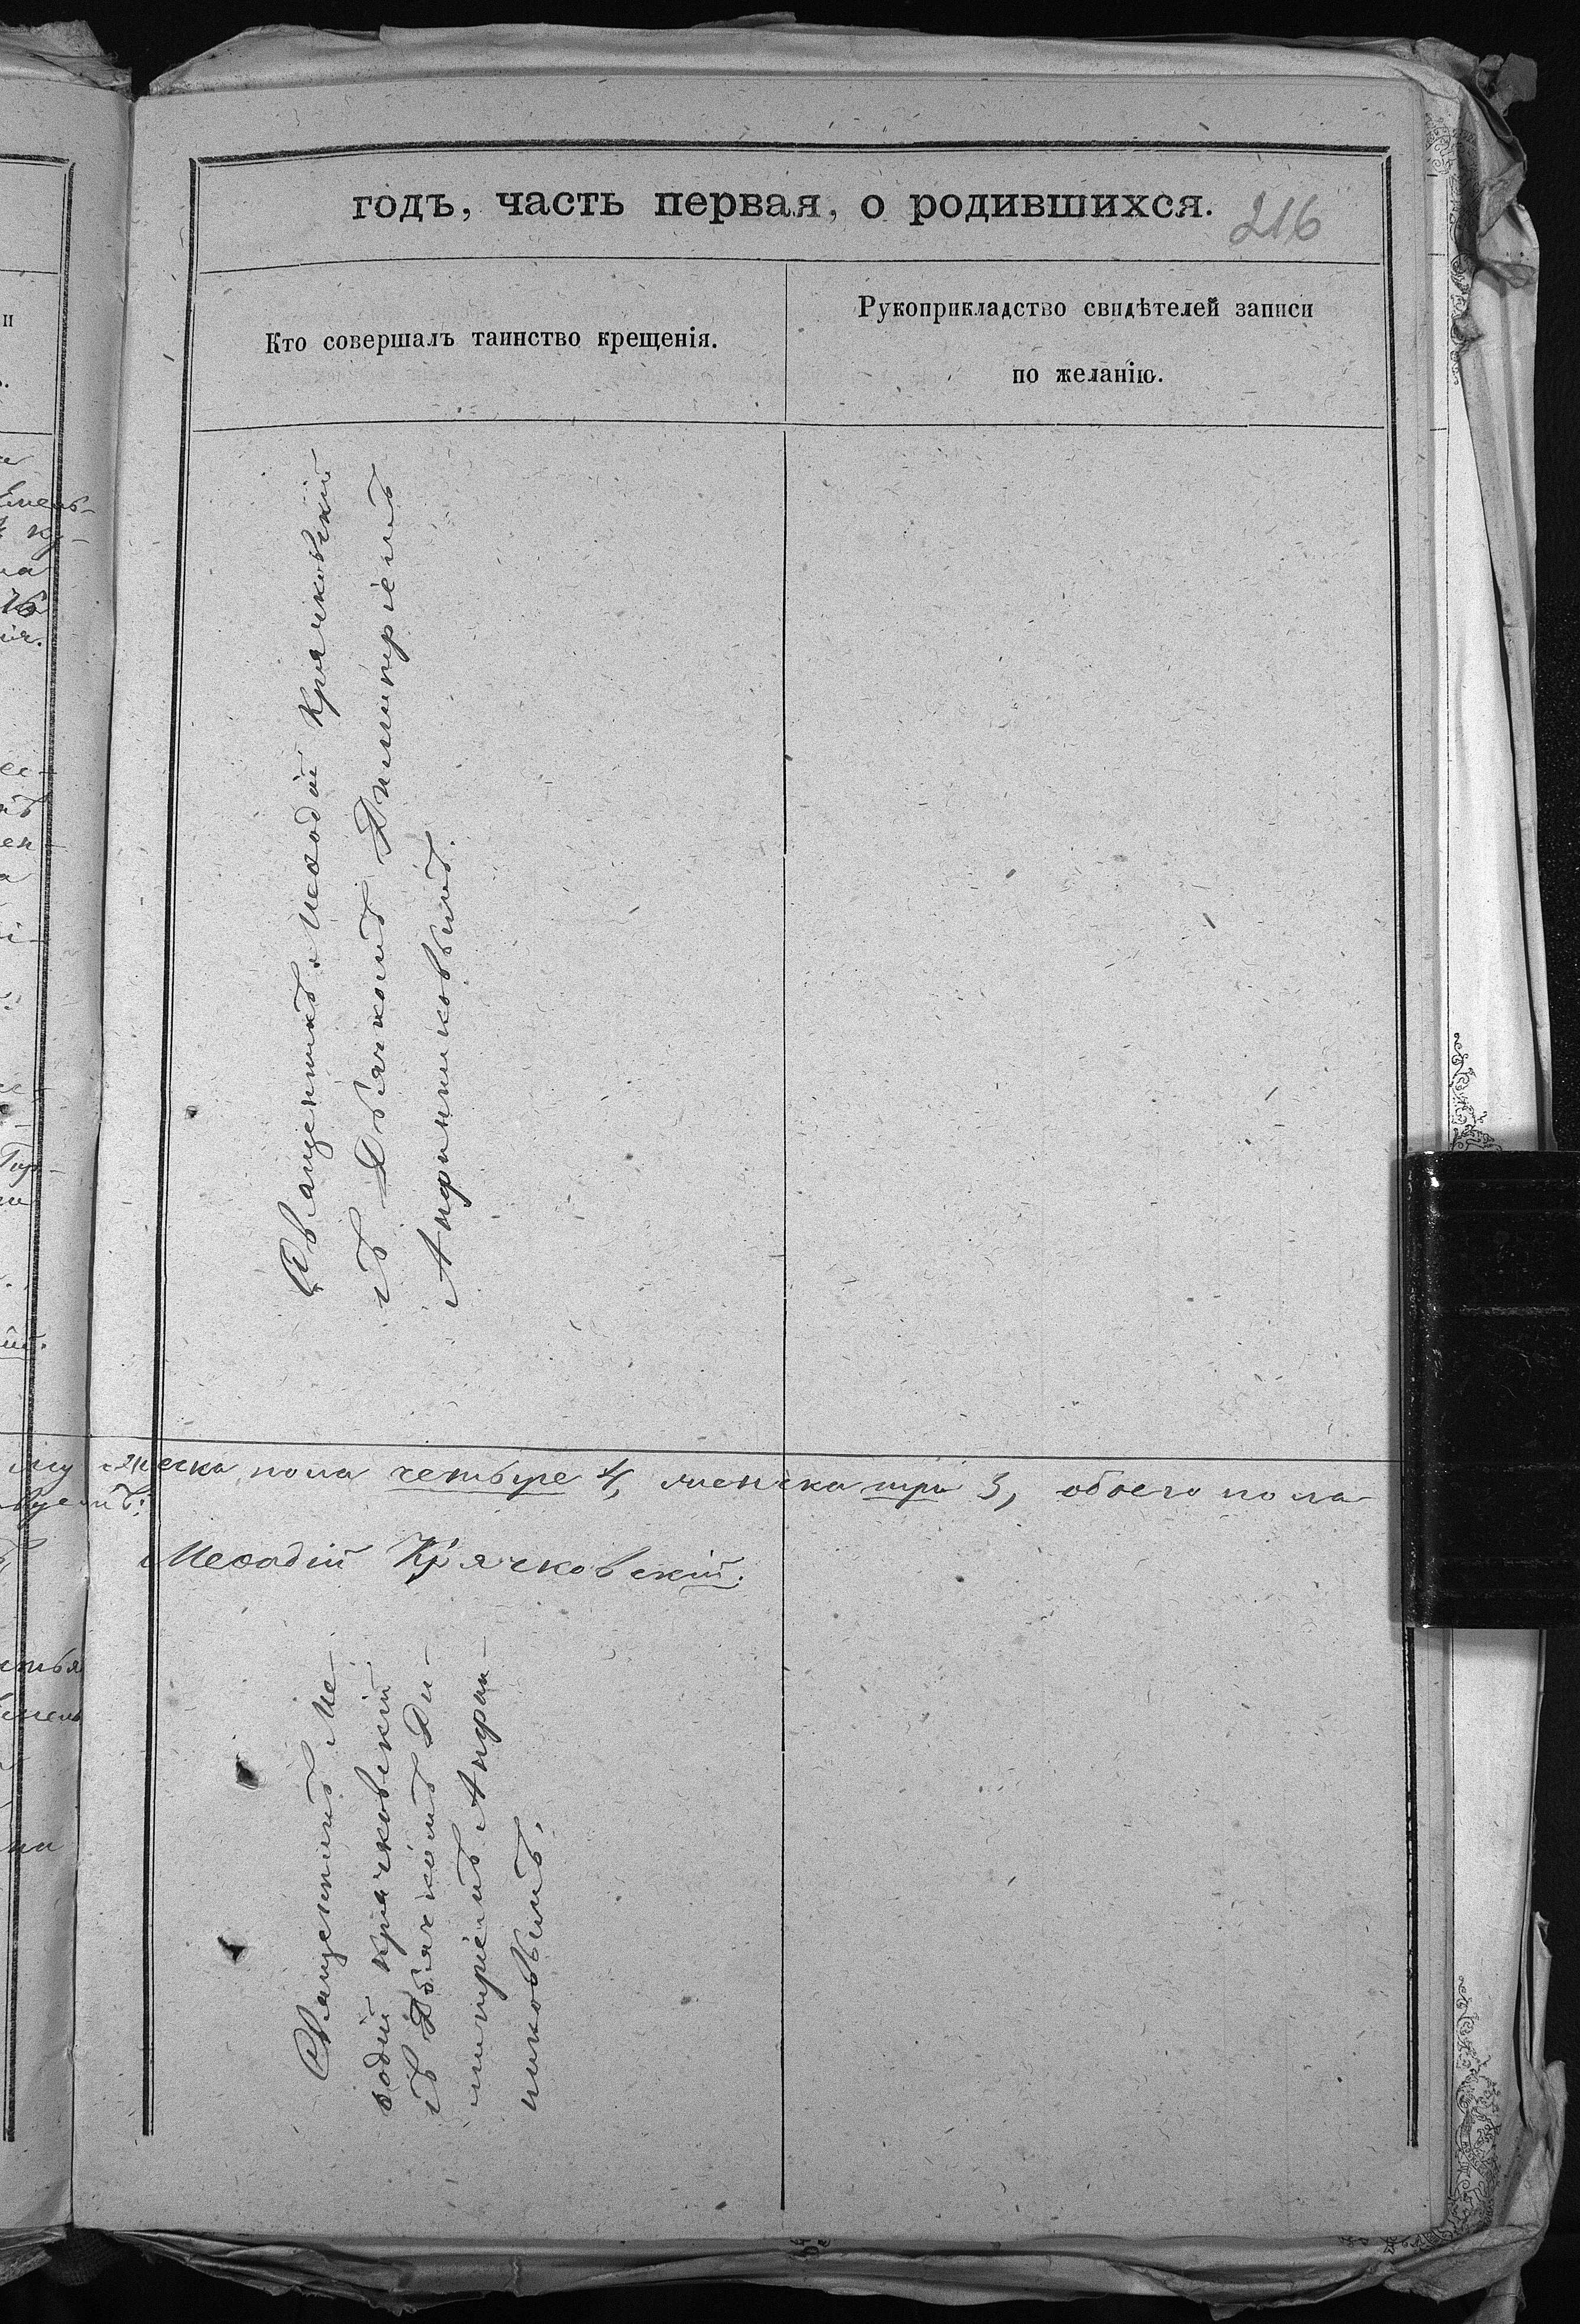 годъ, часть первая, о родившихся.
216
Кто совершалъ таинство крещенія.
Рукоприкладство свидѣтелей записи
по желанію.
Священникъ Меѳодій Крячковскій
съ Дьячкомъ Димитріемъ
Андрониковымъ.
мужеска пола четыре 4, женска три 3, обоего пола
Меѳодій Крячковскій.
Священникъ Ме-
ѳодій Крячковскій
съ Дьячкомъ Ди-
митріемъ Андро-
никовымъ.